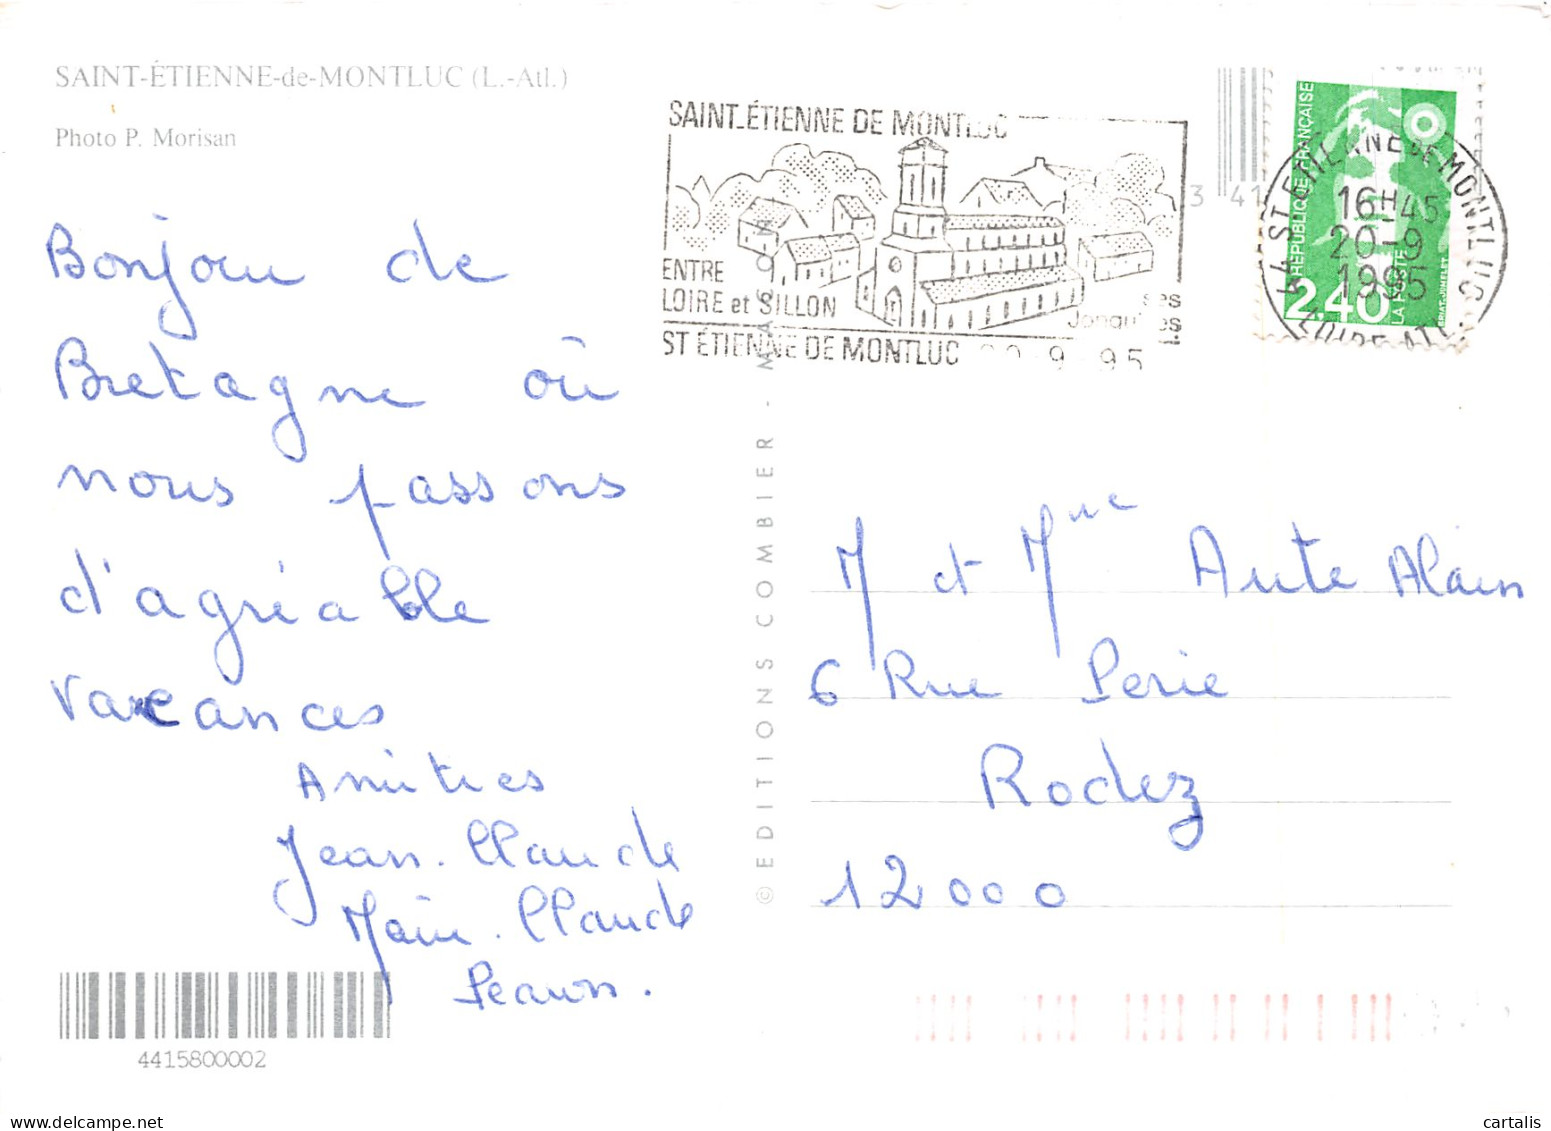 SAINT-ÉTIENNE-de-MONTLUC (L.-Atl.)
Photo P. Morisan
Bonjour de
Bretagne où
nous passons
d'agréable
vaccances
Amitiés
Jean-Claude
Marie-Claude
4415800002
© EDITIONS COMBIER - MACON
SAINT-ÉTIENNE DE MONTLUC
ENTRE
LOIRE et SILLON
ses
ST ÉTIENNE DE MONTLUC 20-9-95
3 41
RÉPUBLIQUE FRANÇAISE
2.40
LA POSTE
44 ST ETIENNE DE MONTLUC
16H45
20-9
1995
LOIRE-ATL.
M et Mme Aute Alain
6 Rue Perie
Rodez
12000
cartalis